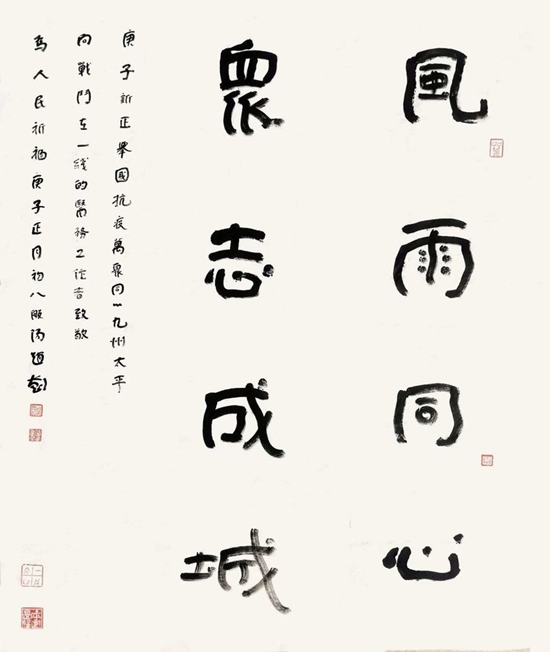 風雨同心
衆志成城
庚子新正舉國抗疫萬衆同心九州太平
向戰鬥在一綫的醫務工作者致敬
為人民祈福庚子正月初八